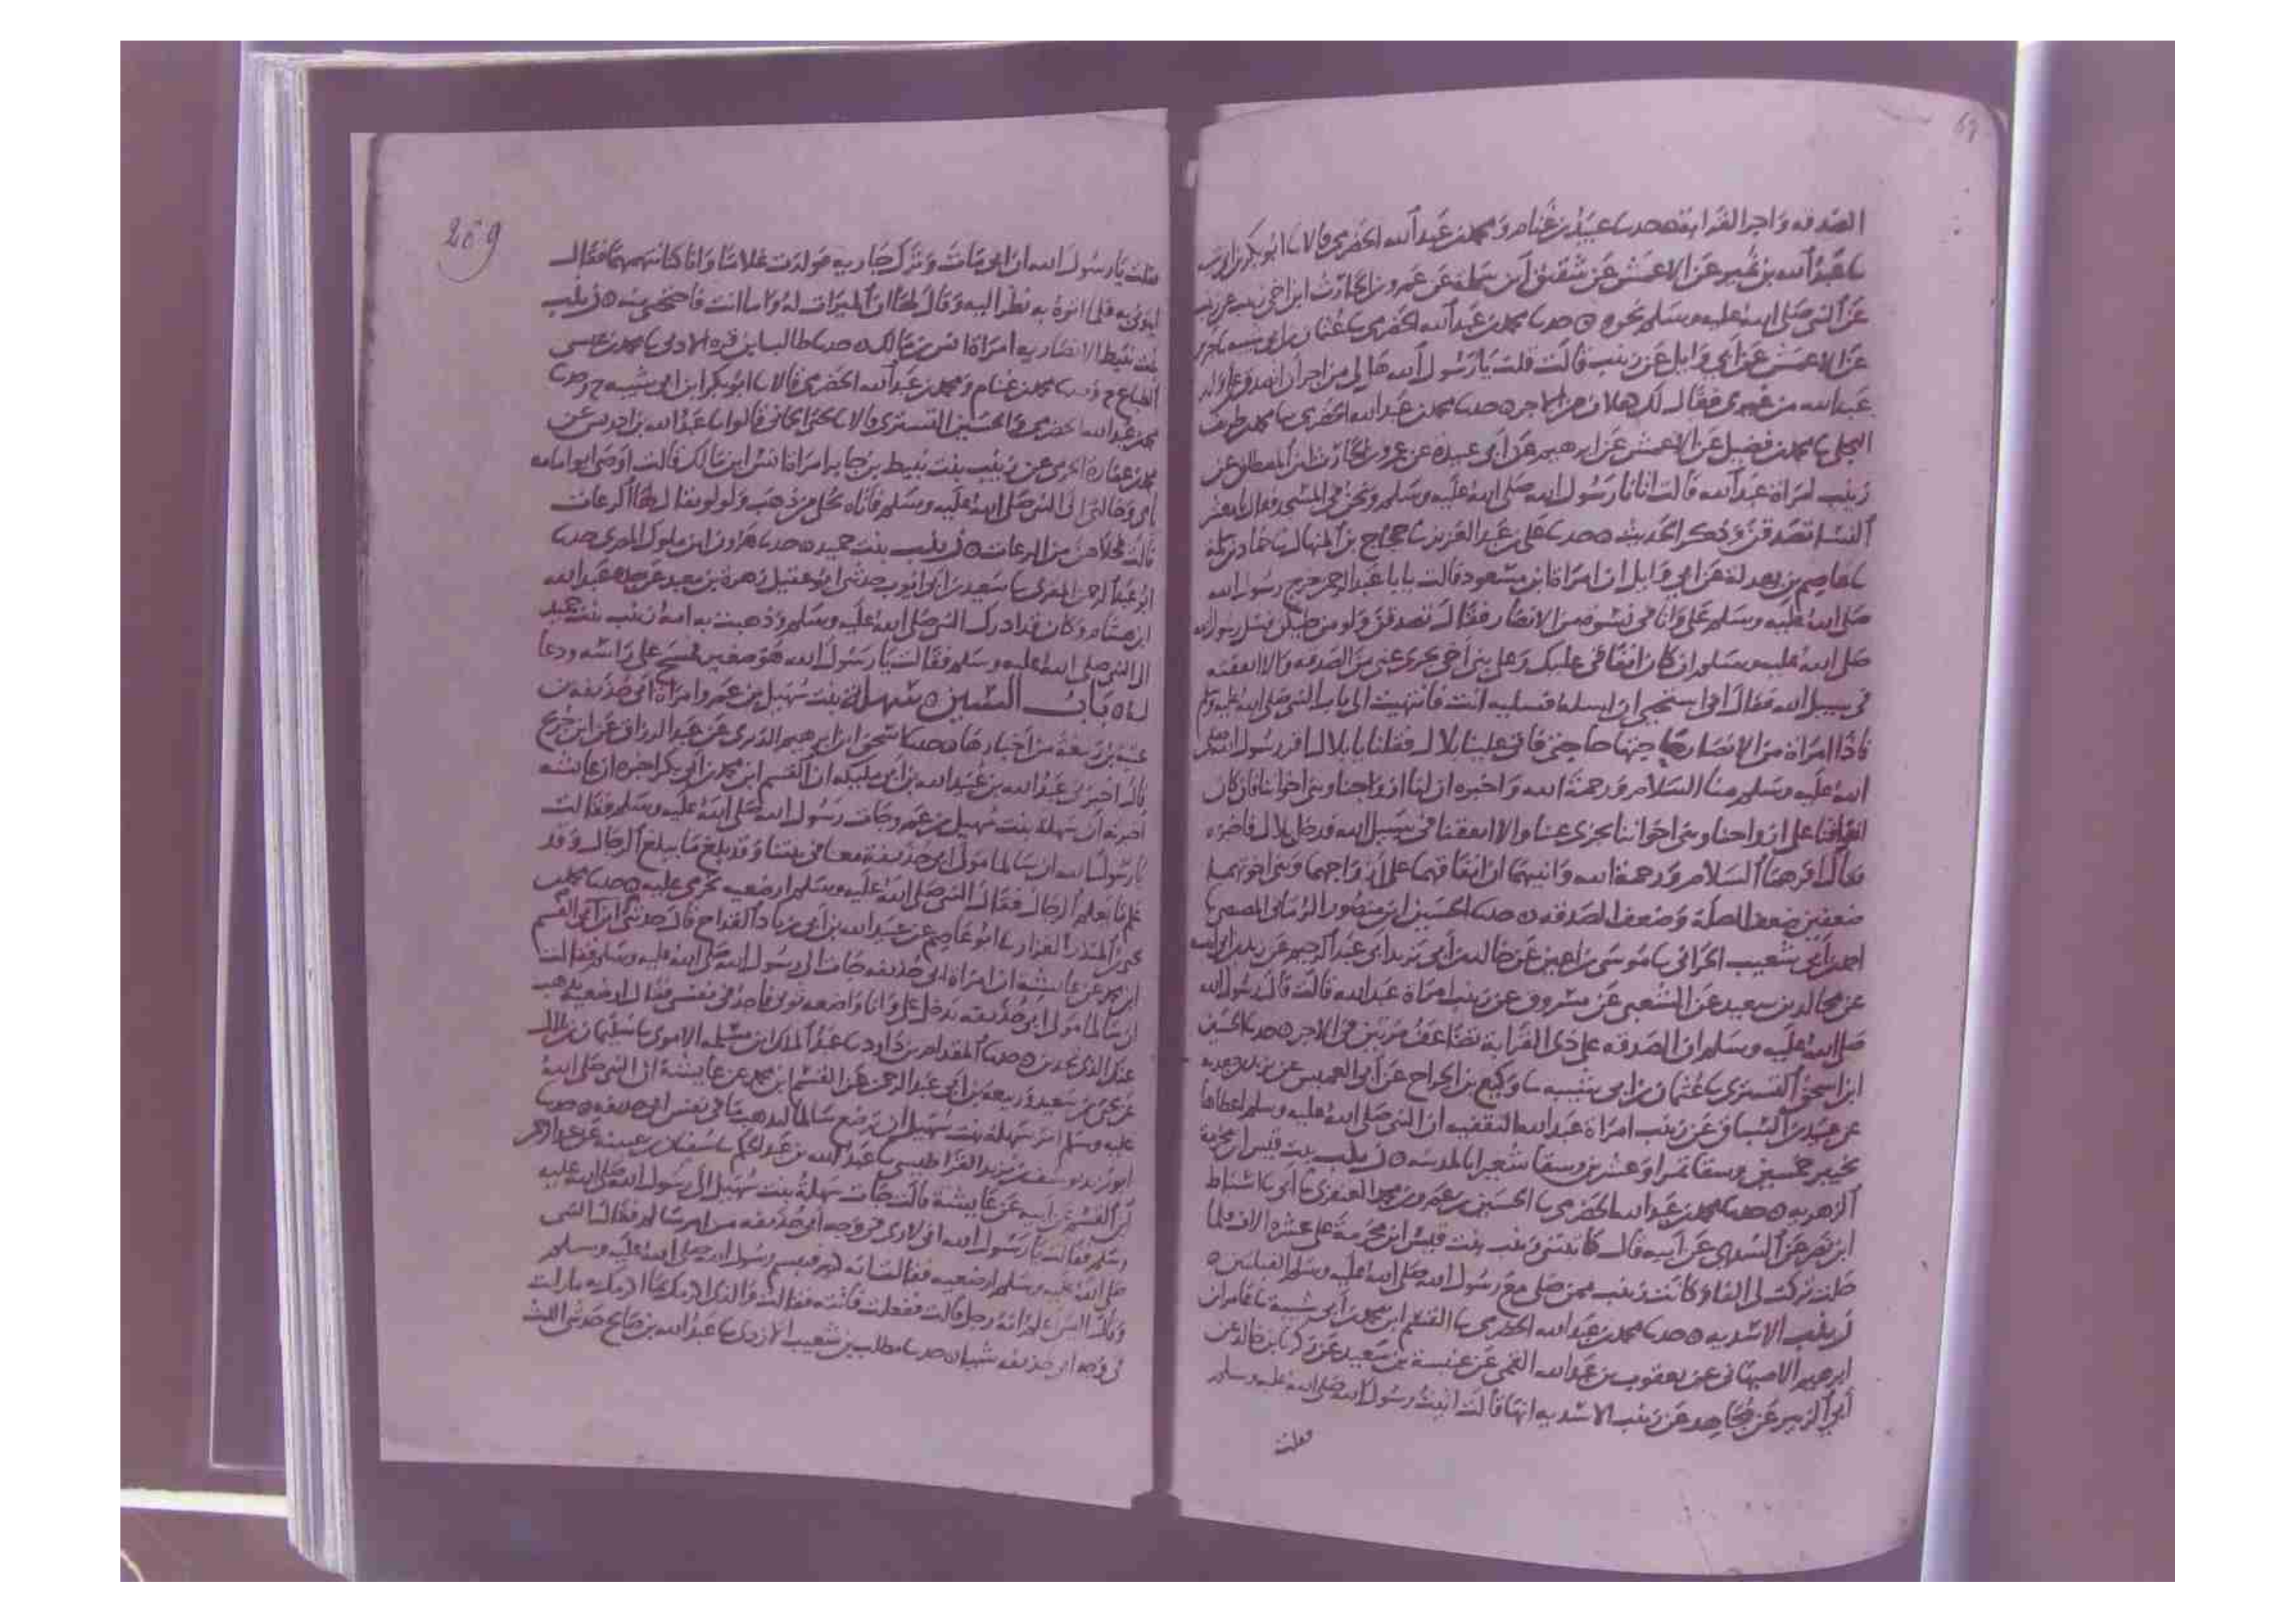 69
الصدقه واجر القرابه ه حدسا عبيد بن غنام ومحمد بن عبد الله الحضرمي قالا سا ابو بكر بن ابي شيبه
سا عبد الله بن نمير عن الاعمش عن شقيق ابن سلمة عن عمرو بن الحارث ابن اخي زينب عن زينب
عن النبي صلى الله عليه وسلم نحوه ه حدسا محمد بن عبد الله الحضرمي سا عثمان بن ابي شيبه سا جرير
عن الاعمش عن ابي وايل عن زينب قالت قلت يا رسول الله هل لي من اجر ان اتصدق على ولد
عبد الله من غيري فقال لك هلان من الاجر ه حدسا محمد بن عبد الله الحضرمي سا محمد بن طريف
البجلي سا محمد بن فضيل عن الاعمش عن ابرهيم عن ابي عبيدة عن عمرو بن الحارث بن المصطلق عن
زينب امراة عبد الله قالت اتانا رسول الله صلى الله عليه وسلم ونحن في المسجد فقال يا معشر
النسا تصدقن وذكر الحديث ه حدسا علي بن عبد العزيز سا حجاج بن المنهال سا حماد بن سلمة
سا عاصم بن بهدلة عن ابي وايل ان امراة ابن مسعود قالت يا با عبد الرحمن خرج رسول الله
صلى الله عليه وسلم علي وانا في نسوة من الانصار فقال تصدقن ولو من حليكن فسل رسول الله
صلى الله عليه وسلم ان كان انفاقي عليك وعلى بني اخي يجزي عني من الصدقه والا انفقته
في سبيل الله فقال اني استحيي ان اسله فسليه انت فانتهيت الى باب النبي صلى الله عليه وسلم
فاذا امراة من الانصار حاجتها حاجتي فاتى علينا بلال فقلنا يا بلال اقر رسول الله صلى
الله عليه وسلم منا السلام ورحمة الله واخبره ان لنا ازواجنا وبني اخواننا فان كان
انفاقنا على ازواجنا وبني اخواننا يجزي عنا والا انفقنا في سبيل الله فدخل بلال فاخبره
فقال اقرهما السلام ورحمة الله وانبيهما ان انفاقهما على ازواجهما وبني اخوتهما
ضعفين ضعف الصلة وضعف الصدقه ه حدسا الحسين ابن منصور الرماني المصيصي سا
احمد ابن شعيب الحراني سا موسى بن اعين عن خالد بن ابي يزيد ابي عبد الرحيم عن زيد بن ابي انيسه
عن مجالد بن سعيد عن الشعبي عن مسروق عن زينب امراة عبد الله قالت قال رسول الله
صلى الله عليه وسلم ان الصدقه على ذي القرابة تضاعف مرتين في الاجر ه حدسا الحسين
ابن اسحق التستري سا عثمان بن ابي شيبه سا وكيع بن الجراح عن ابي العميس عن يزيد بن جعدبه
عن عبيد بن السباق عن زينب امراة عبد الله الثقفيه ان النبي صلى الله عليه وسلم اعطاها
بخيبر خمسين وسقا تمرا وعشرين وسقا شعيرا بالمدينه ه زينب بنت قيس ابن مخرمة
الزهريه ه حدسا محمد بن عبد الله الحضرمي سا الحسين بن عمرو بن محمد العنقزي سا ابي سا اسباط
ابن نصر عن السدي عن ابيه قال كاتبتني زينب بنت قيس ابن مخرمة على عشرة الاف فلما
حلت تركت لي الفا وكانت زينب ممن صلى مع رسول الله صلى الله عليه وسلم القبلتين ه
زينب الاسديه ه حدسا محمد بن عبد الله الحضرمي سا القسم ابن محمد بن ابي شيبة سا عامر ابن
ابرهيم الاصبهاني عن يعقوب بن عبد الله القمي عن عنبسة بن سعيد عن زكريا بن خالد عن
ابي الزبير عن مجاهد عن زينب الاسديه انها قالت اتيت رسول الله صلى الله عليه وسلم
فقلت
209
فقلت يا رسول الله ان ابي مات وترك جاريه فولدت غلاما وانا كنا نتهمها فقال
ايتوني به فلما اتوه به نظر اليه وقال لها ان الميراث له واما انت فاحتجبي منه ه زينب
بنت نبيط الانصاريه امراة انس بن مالك ه حدسا طالب بن قره الادني سا محمد بن عيسى
الطباع ح وحدسا محمد بن غنام ومحمد بن عبد الله الحضرمي قالا سا ابو بكر ابن ابي شيبه ح وحدسا
محمد بن عبد الله الحضرمي والحسين التستري قالا سا يحيى الحماني قالوا سا عبد الله بن ادريس عن
محمد بن عمارة الحزمي عن زينب بنت نبيط بن جابر امراة انس ابن مالك قالت اوصى ابو امامه
بامي وخالتي الى النبي صلى الله عليه وسلم فاتاه حلي من ذهب ولولو يقال لها الرعاث
قالت فحلاهن من الرعاث ه زينب بنت حميد ه حدسا هارون ابن ملول المصري حدسا
ابو عبد الرحمن المقري سا سعيد بن ابي ايوب حدثني ابو عقيل زهرة بن معبد عن جده عبد الله
ابن هشام وكان قد ادرك النبي صلى الله عليه وسلم وذهبت به امه زينب بنت حميد
الى النبي صلى الله عليه وسلم فقالت يا رسول الله هو صغير فمسح على راسه ودعا
له ه باب السين ه سهلة بنت سهيل بن عمرو امراة ابي حذيفه بن
عتبه بن ربيعة من اخبارها ه حدسا اسحق ابن ابرهيم الدبري عن عبد الرزاق عن ابن جريج
قال اخبرني عبد الله بن عبيد الله بن ابي مليكه ان القسم ابن محمد بن ابي بكر اخبره ان عايشه
اخبرته ان سهلة بنت سهيل بن عمرو جات رسول الله صلى الله عليه وسلم فقالت
يا رسول الله ان سالما مولى ابي حذيفة معنا في بيتنا وقد بلغ ما يبلغ الرجال وقد
علم ما يعلم الرجال فقال النبي صلى الله عليه وسلم ارضعيه تحرمي عليه ه حدسا محمد بن
يحيى بن المنذر القزاز سا ابو عاصم عن عبيد الله بن ابي زياد القداح قال حدثني ابن القسم
ابن محمد عن عايشة ان امراة ابي حذيفه جات الى رسول الله صلى الله عليه وسلم فقالت
ان سالما مولى ابي حذيفه يدخل علي وانا واضعه ثوبي فاجد في نفسي فقال ارضعيه يذهب
عنك الذي تجدين ه حدسا المقدام بن داود سا عبد الملك ابن مسلمه الاموي سا سليمان بن بلال
عن يحيى بن سعيد وربيعة بن ابي عبد الرحمن عن القسم ابن محمد عن عايشة ان النبي صلى الله
عليه وسلم امر سهلة بنت سهيل ان ترضع سالما ليذهب ما في نفس ابي حذيفه ه حدسا
ابو يزيد يوسف بن يزيد القراطيسي سا عبد الله بن عبد الحكم سا سفيان بن عيينة عن عبد الرحمن
ابن القسم عن ابيه عن عايشة قالت جات سهلة بنت سهيل الى رسول الله صلى الله عليه
وسلم فقالت يا رسول الله اني لارى في وجه ابي حذيفه من امر سالم فقال النبي
صلى الله عليه وسلم ارضعيه فقالت انه كبير فتبسم رسول الله صلى الله عليه وسلم
وقال الست اعلم انه رجل قالت ففعلت فاتته فقالت والذي اكرمك بما اكرمك به ما رايت
في وجه ابي حذيفه شيا ه حدسا مطلب بن شعيب الازدي سا عبد الله بن صالح حدثني الليث